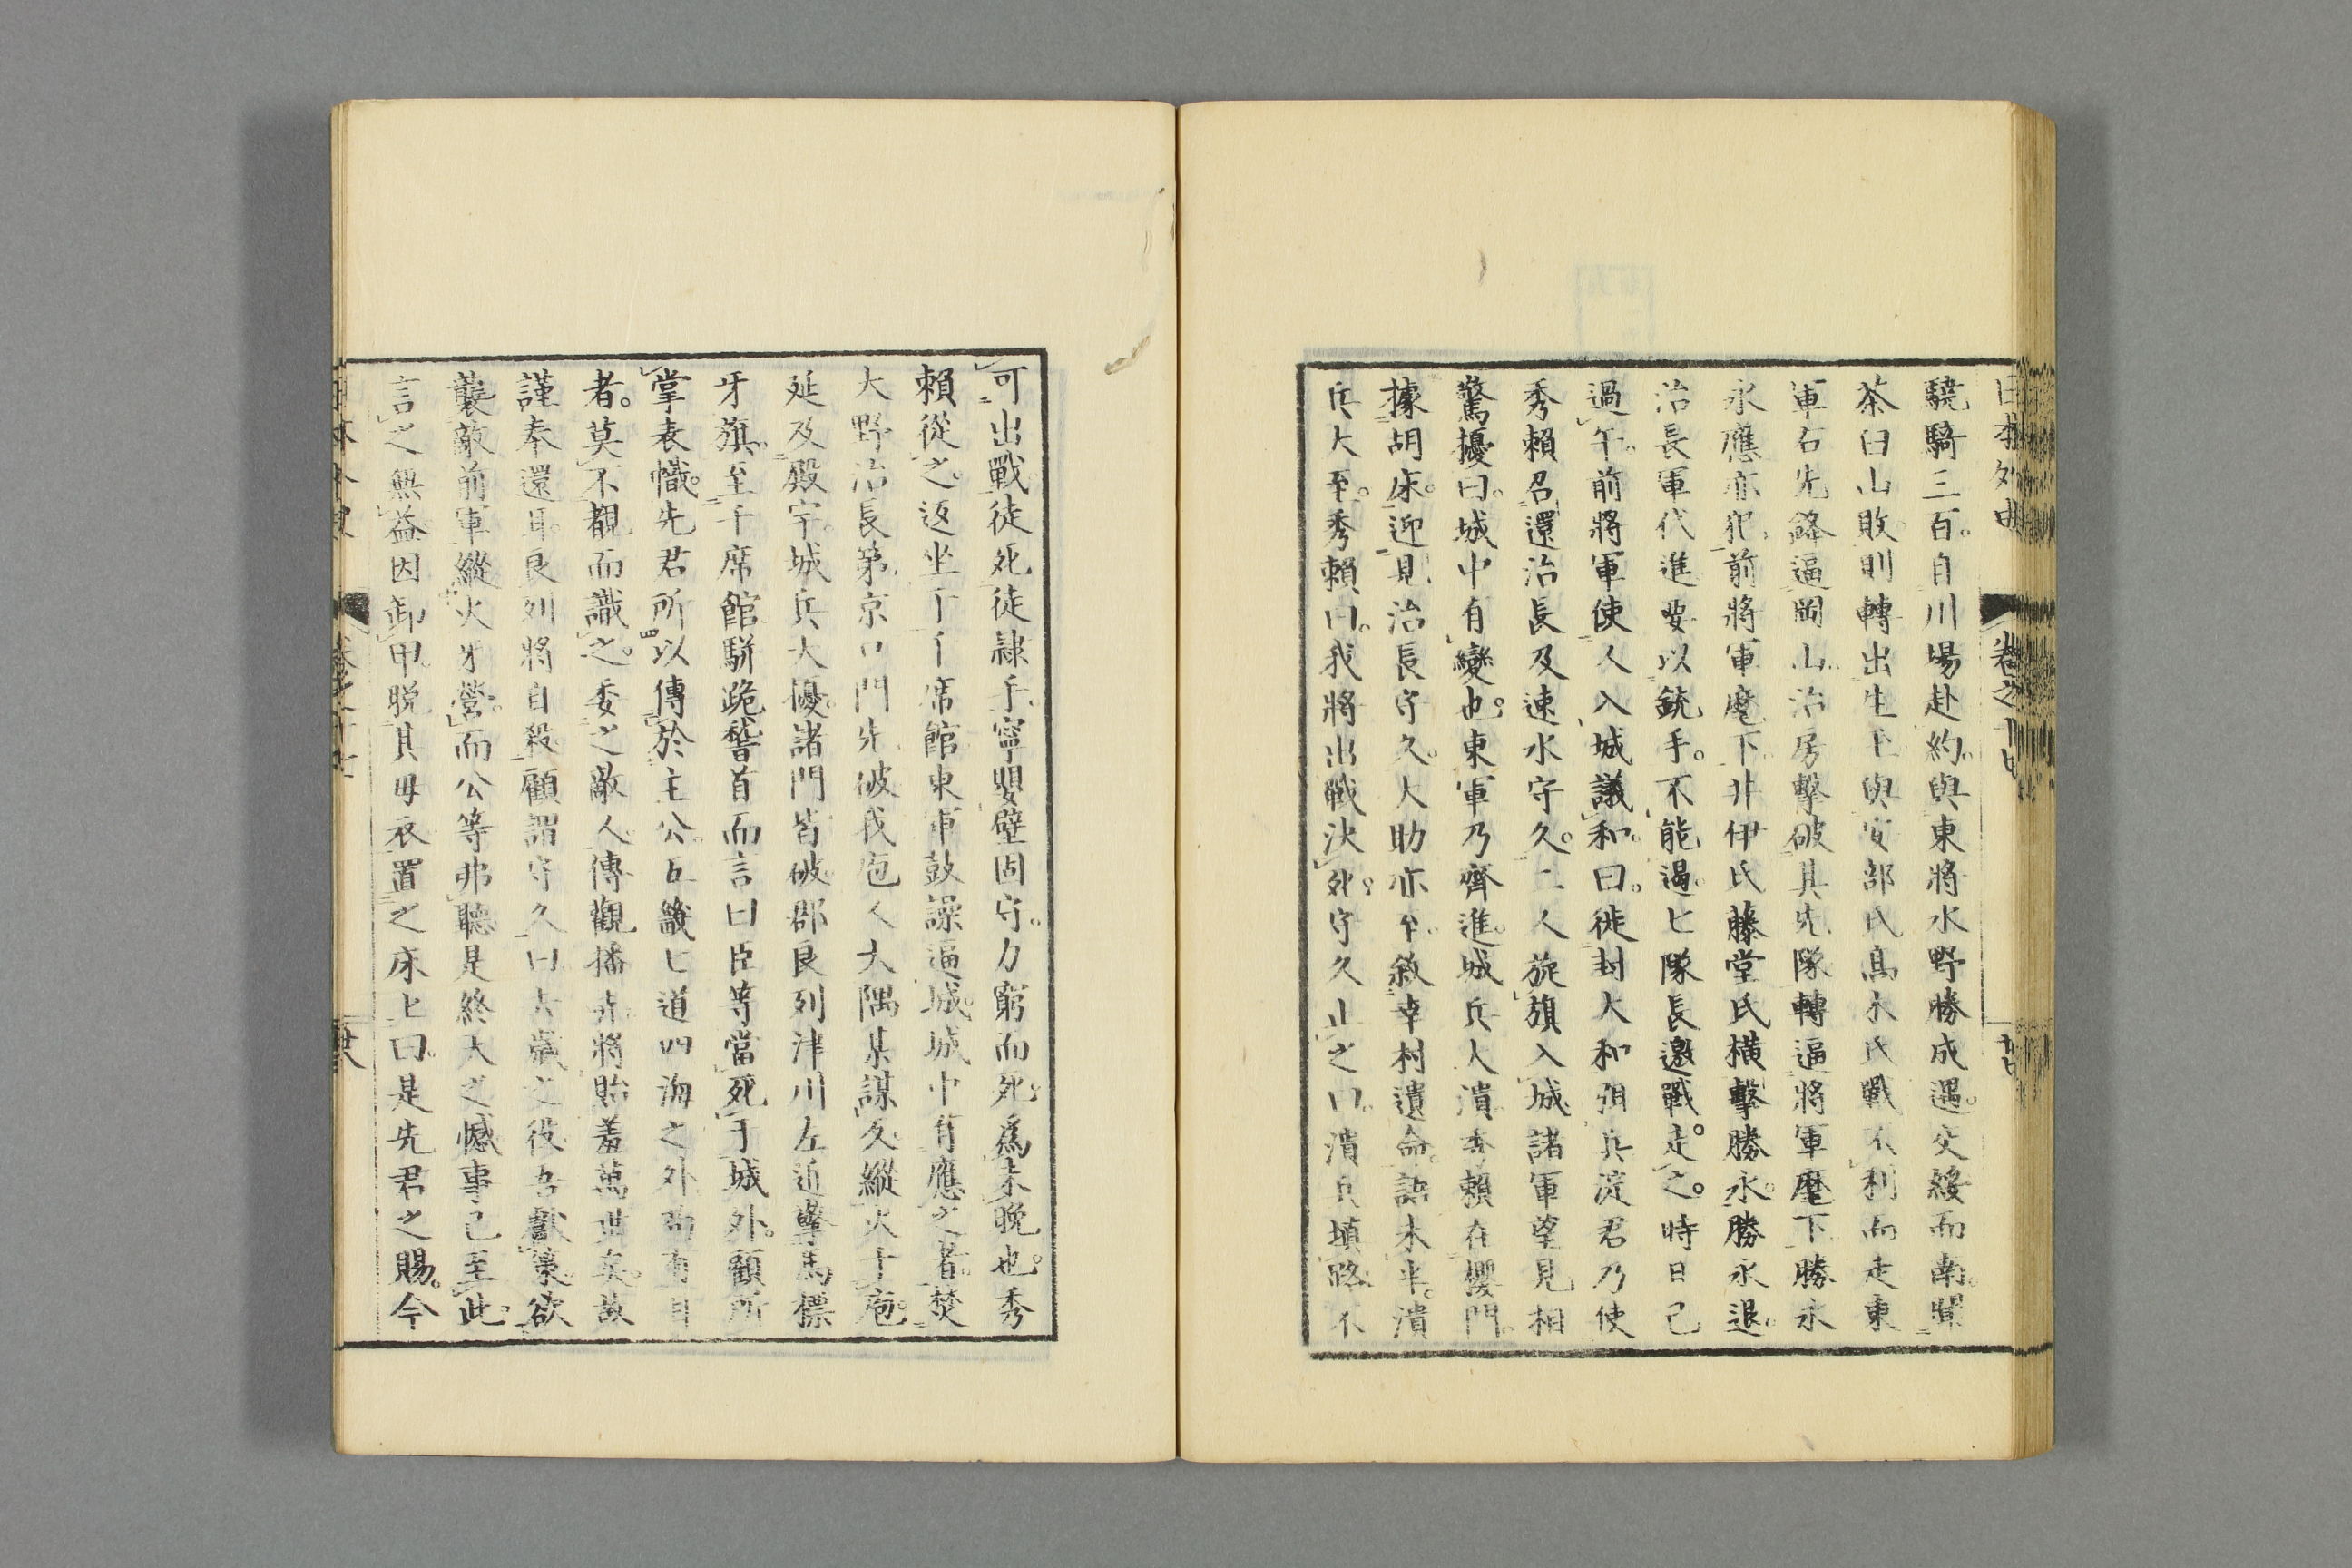 日本外史 卷之十七
驍騎三百。自川場赴約。與東將水野勝成遇。交綏而南。聞
茶臼山敗。則轉出生玉。與安部氏高木氏戰。不利而走。東
軍右先鋒逼岡山。治房擊破其先隊。轉逼將軍麾下。勝永
永應亦犯前將軍麾下。井伊氏藤堂氏橫擊勝永。勝永退。
治長軍代進。要以銃手。不能遏。七隊長邀戰走之。時日已
過午。前將軍使人入城議和。曰。徙封大和。弭兵。淀君乃使
秀賴召還治長及速水守久。二人旋旗入城。諸軍望見相
驚擾曰。城中有變也。東軍乃齊進。城兵大潰。秀賴在櫻門。
據胡床。迎見治長守久。大助亦至。敘幸村遺命。語未半。潰
兵大至。秀賴曰。我將出戰決死。守久止之曰。潰兵填路。不
可出戰。徒死徒隷手。寧嬰壁固守。力窮而死。爲未晚也。秀
賴從之。返坐于千席館。東軍鼓譟逼城。城中有應之者。焚
大野治長第。京口門先破。我庖人大隅某謀久。縱火于庖。
延及殿宇。城兵大擾。諸門皆破。郡良列津川左近擧馬標
牙旗。至千席館。駢跪稽首而言曰。臣等當死于城外。顧所
掌表幟。先君所以傳於主公。五畿七道四海之外苟有目
者。莫不覩而識之。委之敵人。傳觀播弄。將貽羞萬世矣。故
謹奉還耳。良列將自殺。顧謂守久曰。去歲之役。吾獻策。欲
襲敵前軍縱火牙營。而公等弗聽。是終天之憾。事已至此。
言之無益。因卸甲。脫其母衣。置之床上曰。是先君之賜。今
卷之十七 廿八